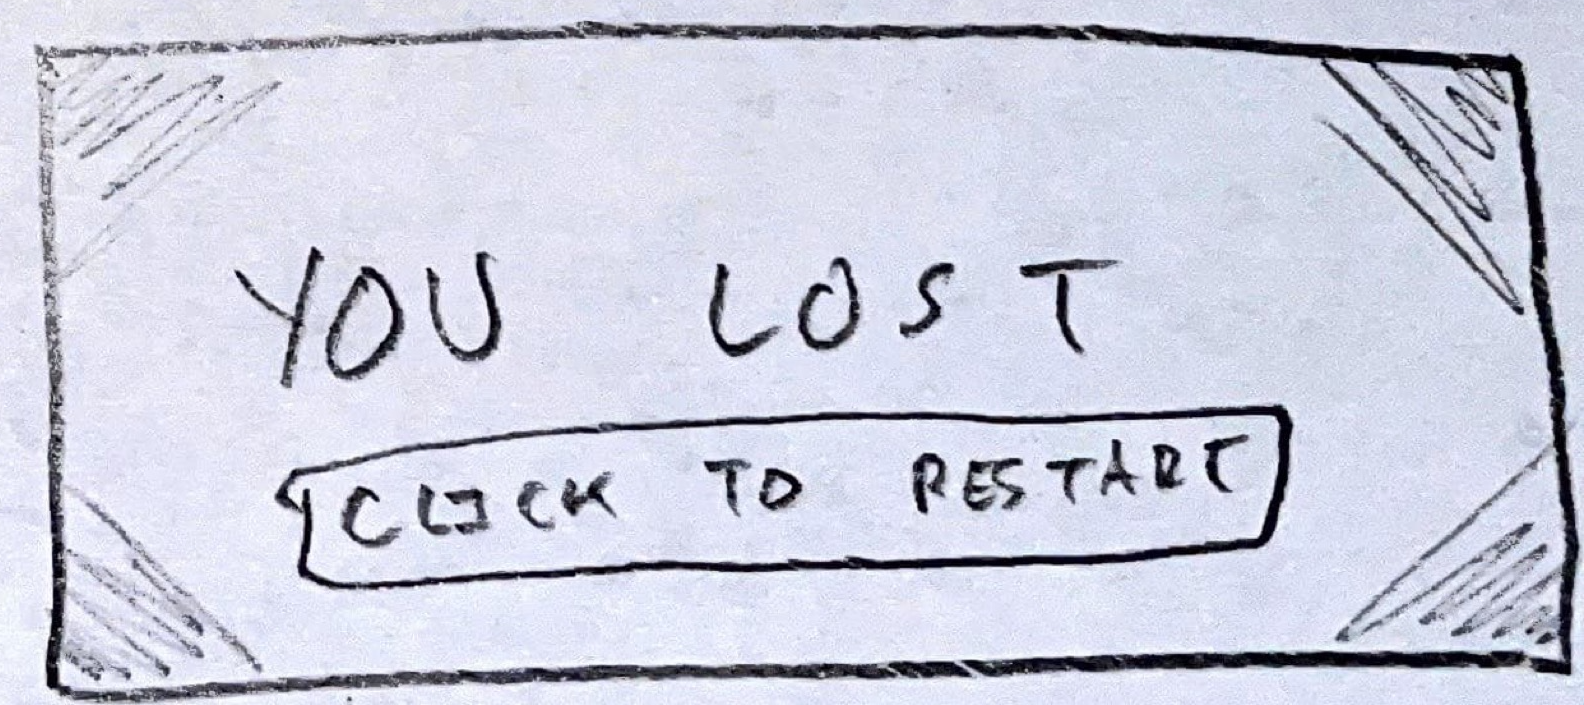 YOU LOST
CLICK TO RESTART